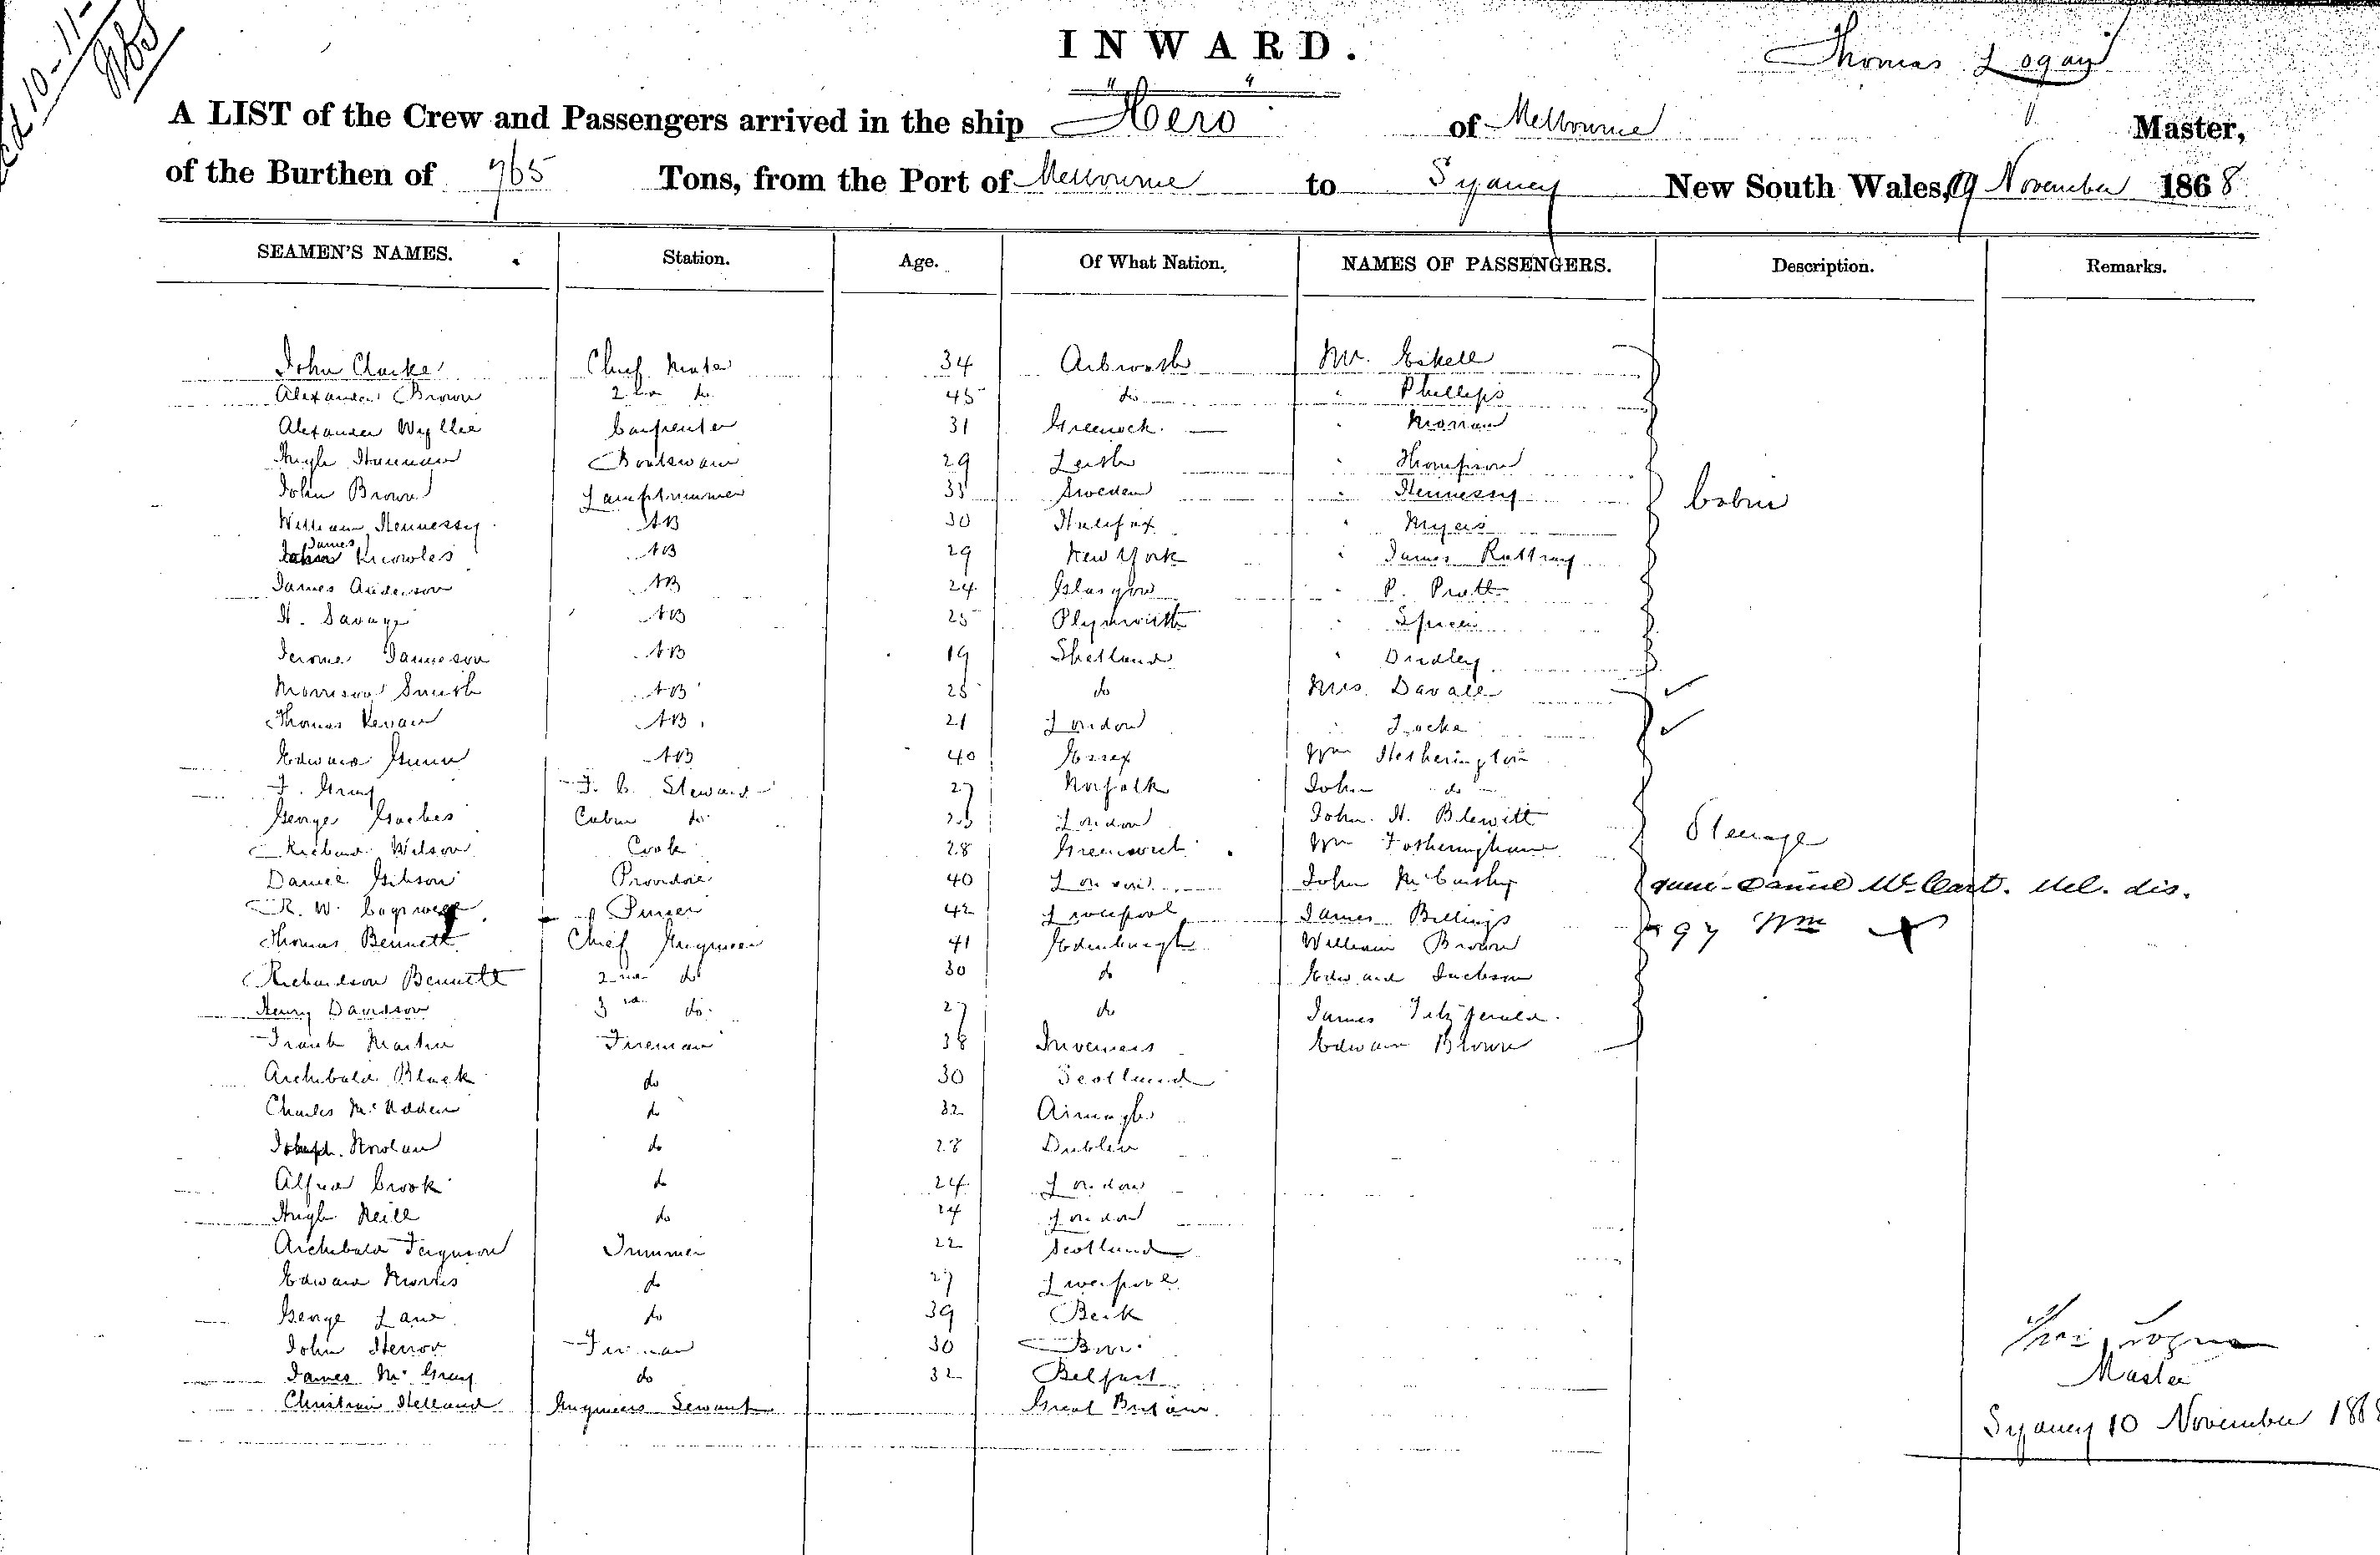 INWARD.
Thomas Logan
A LIST of the Crew and Passengers arrived in the ship "Hero" of Melbourne Master,
of the Burthen of 965 Tons, from the Port of Melbourne to Sydney New South Wales, November 1868
SEAMEN'S NAMES. Station. Age. Of What Nation. NAMES OF PASSENGERS. Description. Remarks.
John Clarke Chief Mate 34 Arbroath Mr. Eskell
Alexander Brown 2nd do 45 do " Phillips
Alexander Wyllie Carpenter 31 Greenock "
Hugh Boatswain 29 Leith " Thompson
John Brown Lamptrimmer 35 Sweden " Hennessy
William Hennessy AB 30 Halifax " Myers
James Knowles AB 29 New York " James Rattray
James Anderson AB 24 Glasgow " P. Pratt
H. Savage AB 25 Plymouth "
Jerome Jamieson AB 19 Shetland "
Morrison Smith AB 25 do Mrs. Davall
Thomas AB 21 London " Locke
Edward Gunn AB 40 Essex Wm Hetherington
F. Gray F. C. Steward 27 Norfolk John do
George Cabin do London John H. Blewitt
Richard Wilson Cook 28 Greenwich Wm Fotheringham
Daniel Gibson Providore 40 London John McCarthy
R. W. Purser 42 Liverpool James Billings
Thomas Bennett Chief Engineer 41 Edenburgh William Brown
Richardson Bennett 2nd do 30 do Edward Jackson
Henry Davidson 3rd do 27 do James Fitzgerald
Frank Martin Fireman 38 Inverness Edward Brown
Archibald Black do 30 Scotland
Charles McAdden do 32 Armagh
Joseph Nowlan do 28 Dublin
Alfred Crook do 24 London
Hugh Neill do 24 London
Archibald Ferguson Trimmer 22 Scotland
Edward Morris do 27 Liverpool
George Lane do 39
John Fireman 30
James McGray do 32 Belfast
Christian Helland Engineers Servant Great Britain
Cabin
Steerage
Daniel McCart. Mel. dis.
97 Wm
Thos Logan
Master
Sydney 10 November 1868